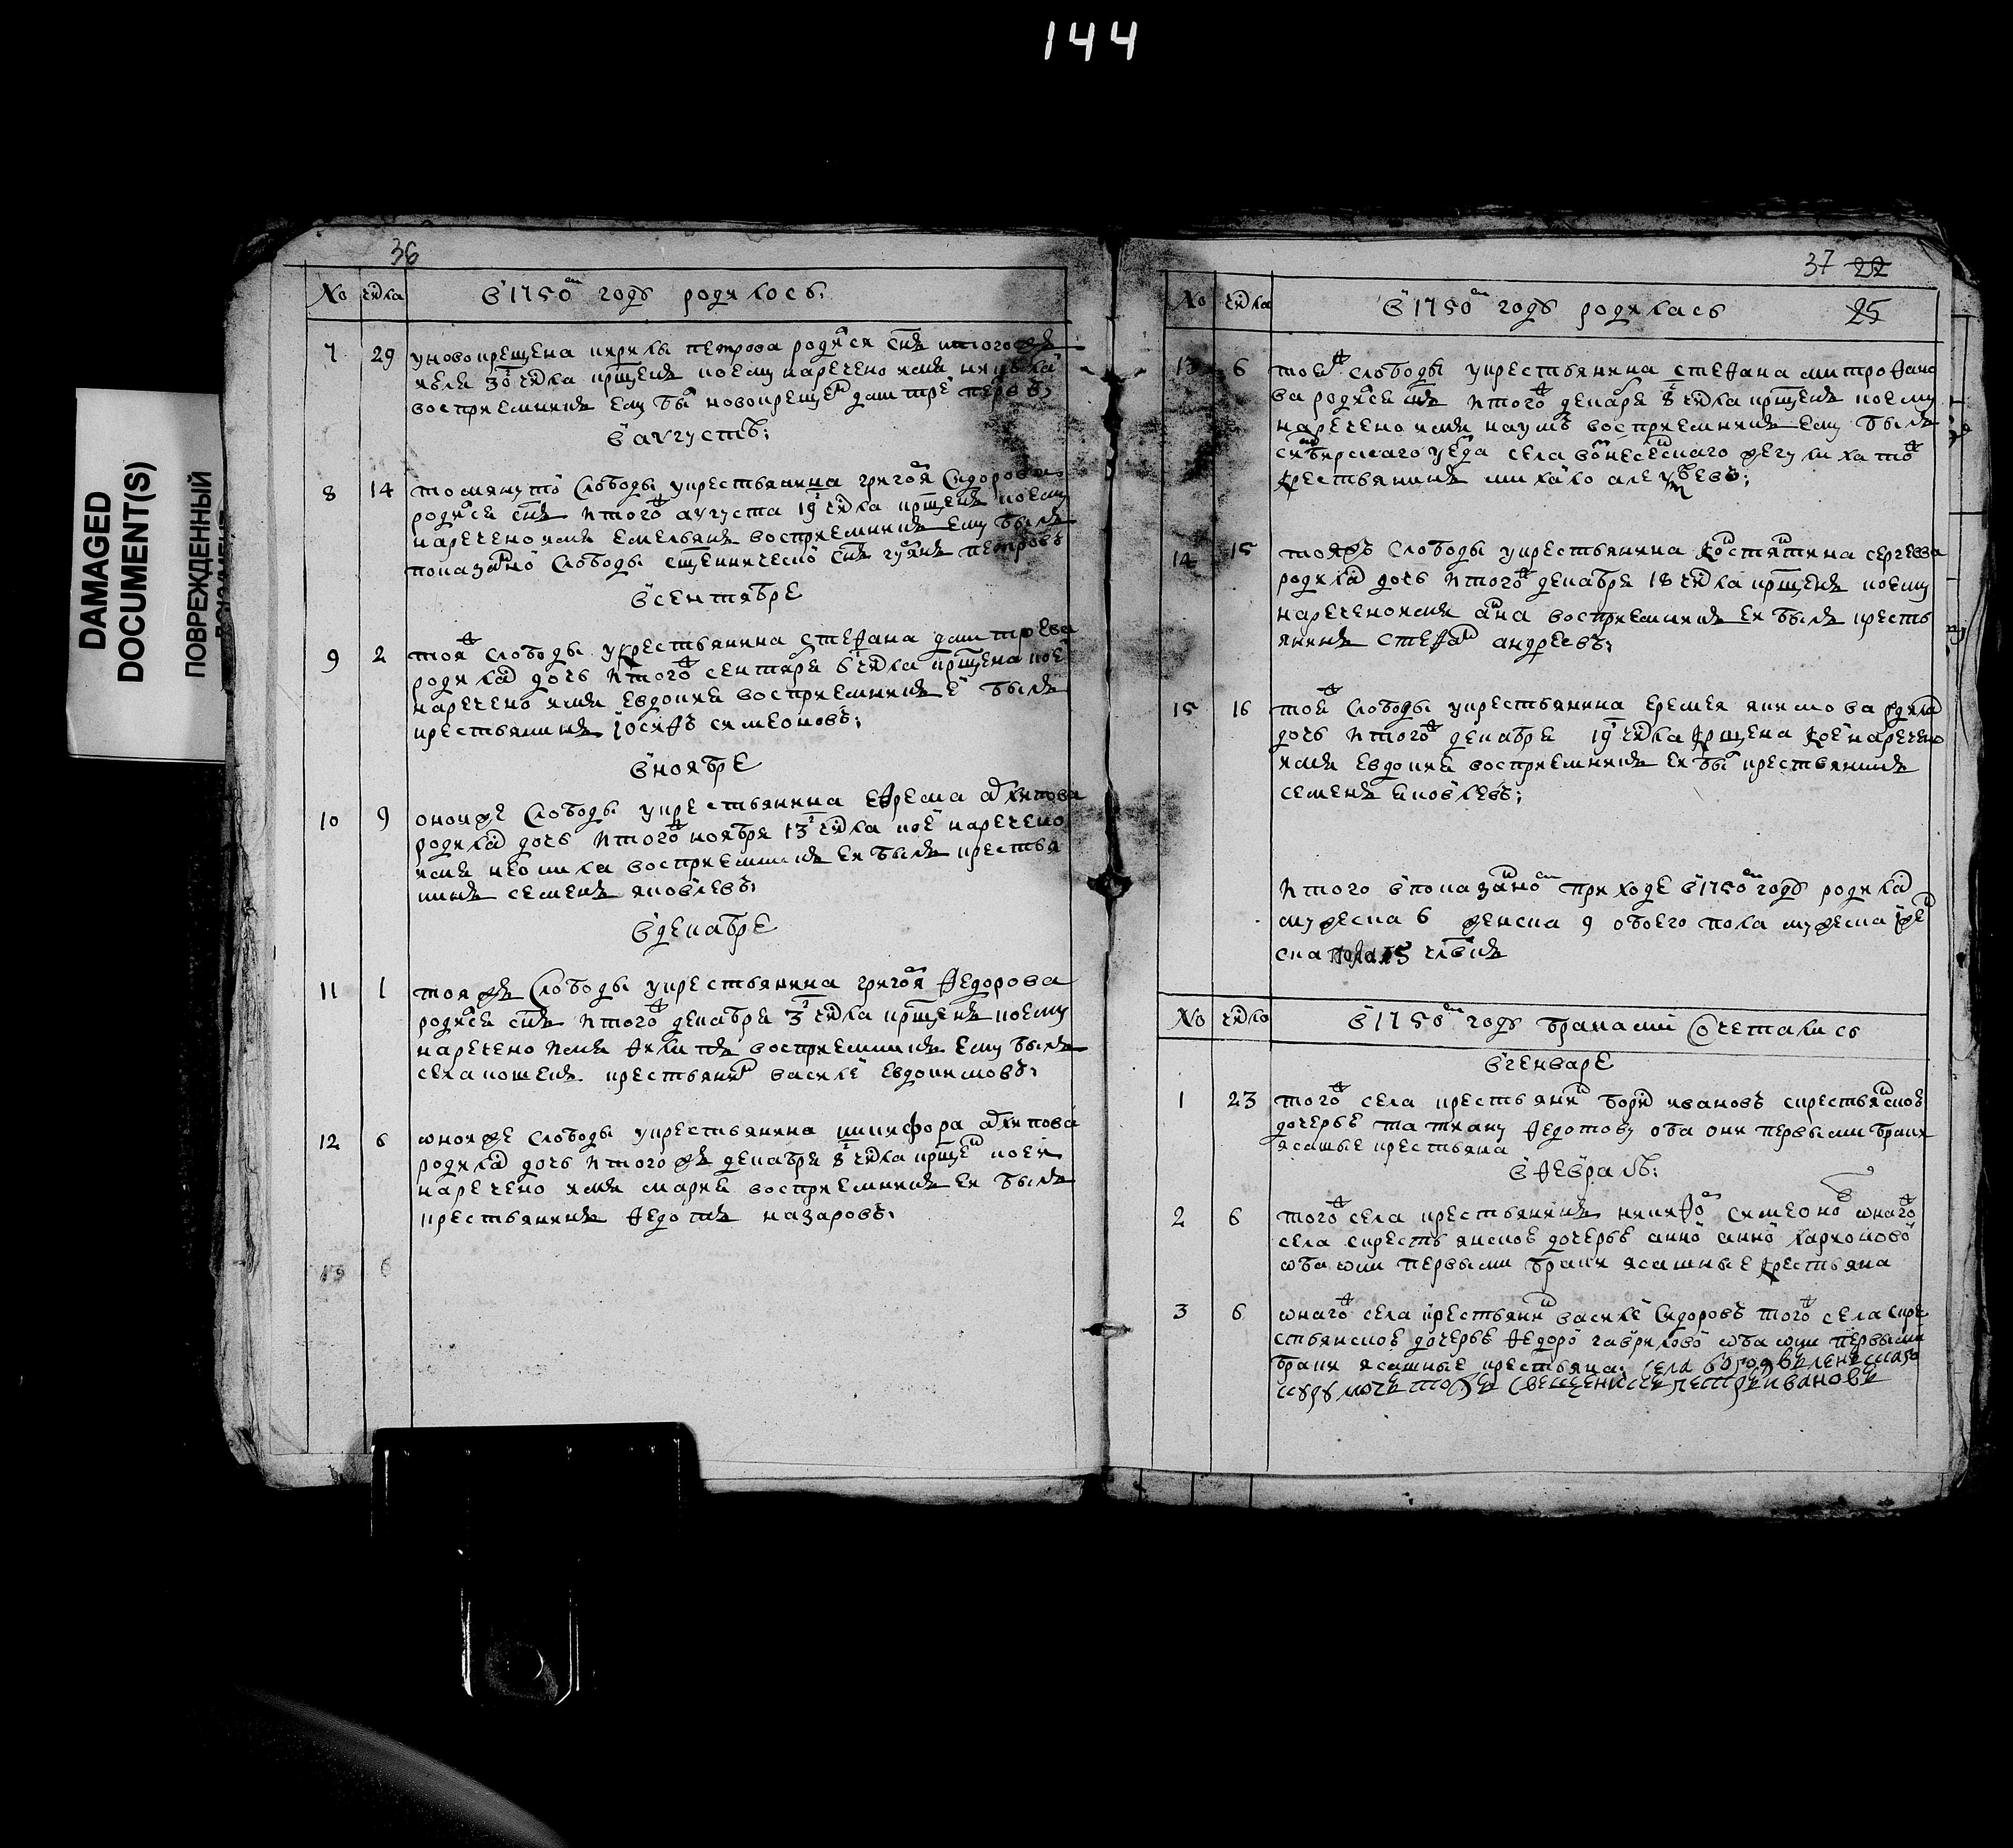 144
DAMAGED
DOCUMENT(S)
ПОВРЕЖДЕННЫЙ
36
№ числа в 1750м годѣ родилось:
7 29 у новокрещена кирилы петрова родился снъ и того жъ
июля 30 числа крщенъ коему наречено имя никола
восприемникъ ему бы новокрещен дмитре петровъ
в августѣ:
8 14 слободы у крестьянина григоя сидорова
родися снъ и того ж августа 19 числа крщенъ коему
наречено имя емельянъ восприемникъ ему былъ
показано слободы сщеннической снъ петровъ
в сентябре
9 2 тоя ж слободы у крестьянина стефана дмитрева
родила дочь и того ж сентября 6 числа крщена кое
наречено имя евдокия восприемникъ е былъ
крестьянинъ иосифъ симеоновъ:
в ноябре
10 9 оной же слободы у крестьянина ефрема архипова
родила дочь и того ж ноября 13 числа кое наречено
имя неонила восприемникъ ея былъ крестья
нинъ семенъ яковлевъ:
в декабре
11 1 тоя жъ слободы у крестьянина григоя федорова
родися снъ и того ж декабря 3 числа крщенъ коему
наречено имя филипъ восприемникъ ему былъ
села крестьянин василе евдокимовъ:
12 6 оной же слободы у крестьянина никифора архипова
родила дочь и того жъ декабря 8 числа крще коей
наречено имя мария восприемникъ ея былъ
крестьянинъ федотъ назаровъ:
13 6
37 22
25
№ числа в 1750м годѣ родилась
13 6 тое ж слободы у крестьянина стефана митрофано
ва родися снъ и того ж декабря 8 числа крщенъ коему
наречено имя наумъ восприемникъ ему былъ
синбирскаго уезда села вознесенскаго
крестьянинъ михайло алексеевъ:
14 15 тояжъ слободы у крестьянина костянтина сергеева
родила дочь и того ж декабря 18 числа крщенъ коему
наречено имя анна восприемникъ ея былъ кресть
янинъ стефан андреевъ:
15 16 тое ж слободы у крестьянина еремея якимова родила
дочь и того ж декабря 19 числа крщена кое наречено
имя евдокия восприемникъ ея бы крестьянинъ
семенъ яковлевъ:
итого в показано приходе в 1750м годѣ родила
мужеска 6 женска 9 обоего пола мужеска и жен
ска пола 15 члвкъ
№ число в 1750м годѣ браками сочетались
в генваре
1 23 того ж села крестьянин борис ивановъ с крестьянское
дочерье татиану федотову оба они первыми браки
ясашые крестьяна
в феврале:
2 6 того ж села крестьянинъ никифо симеоно онаго ж
села с крестьянское дочерье анно анно харионово
оба они первыми браки ясашные крестьяна
3 6 онаго ж села крестьянин василе сидоровъ того ж села с кре
стьянское дочерье федоро гаврилово оба они первыми
браки ясашные крестьяна; села богоявленскаго
священникъ петръ ивановъ